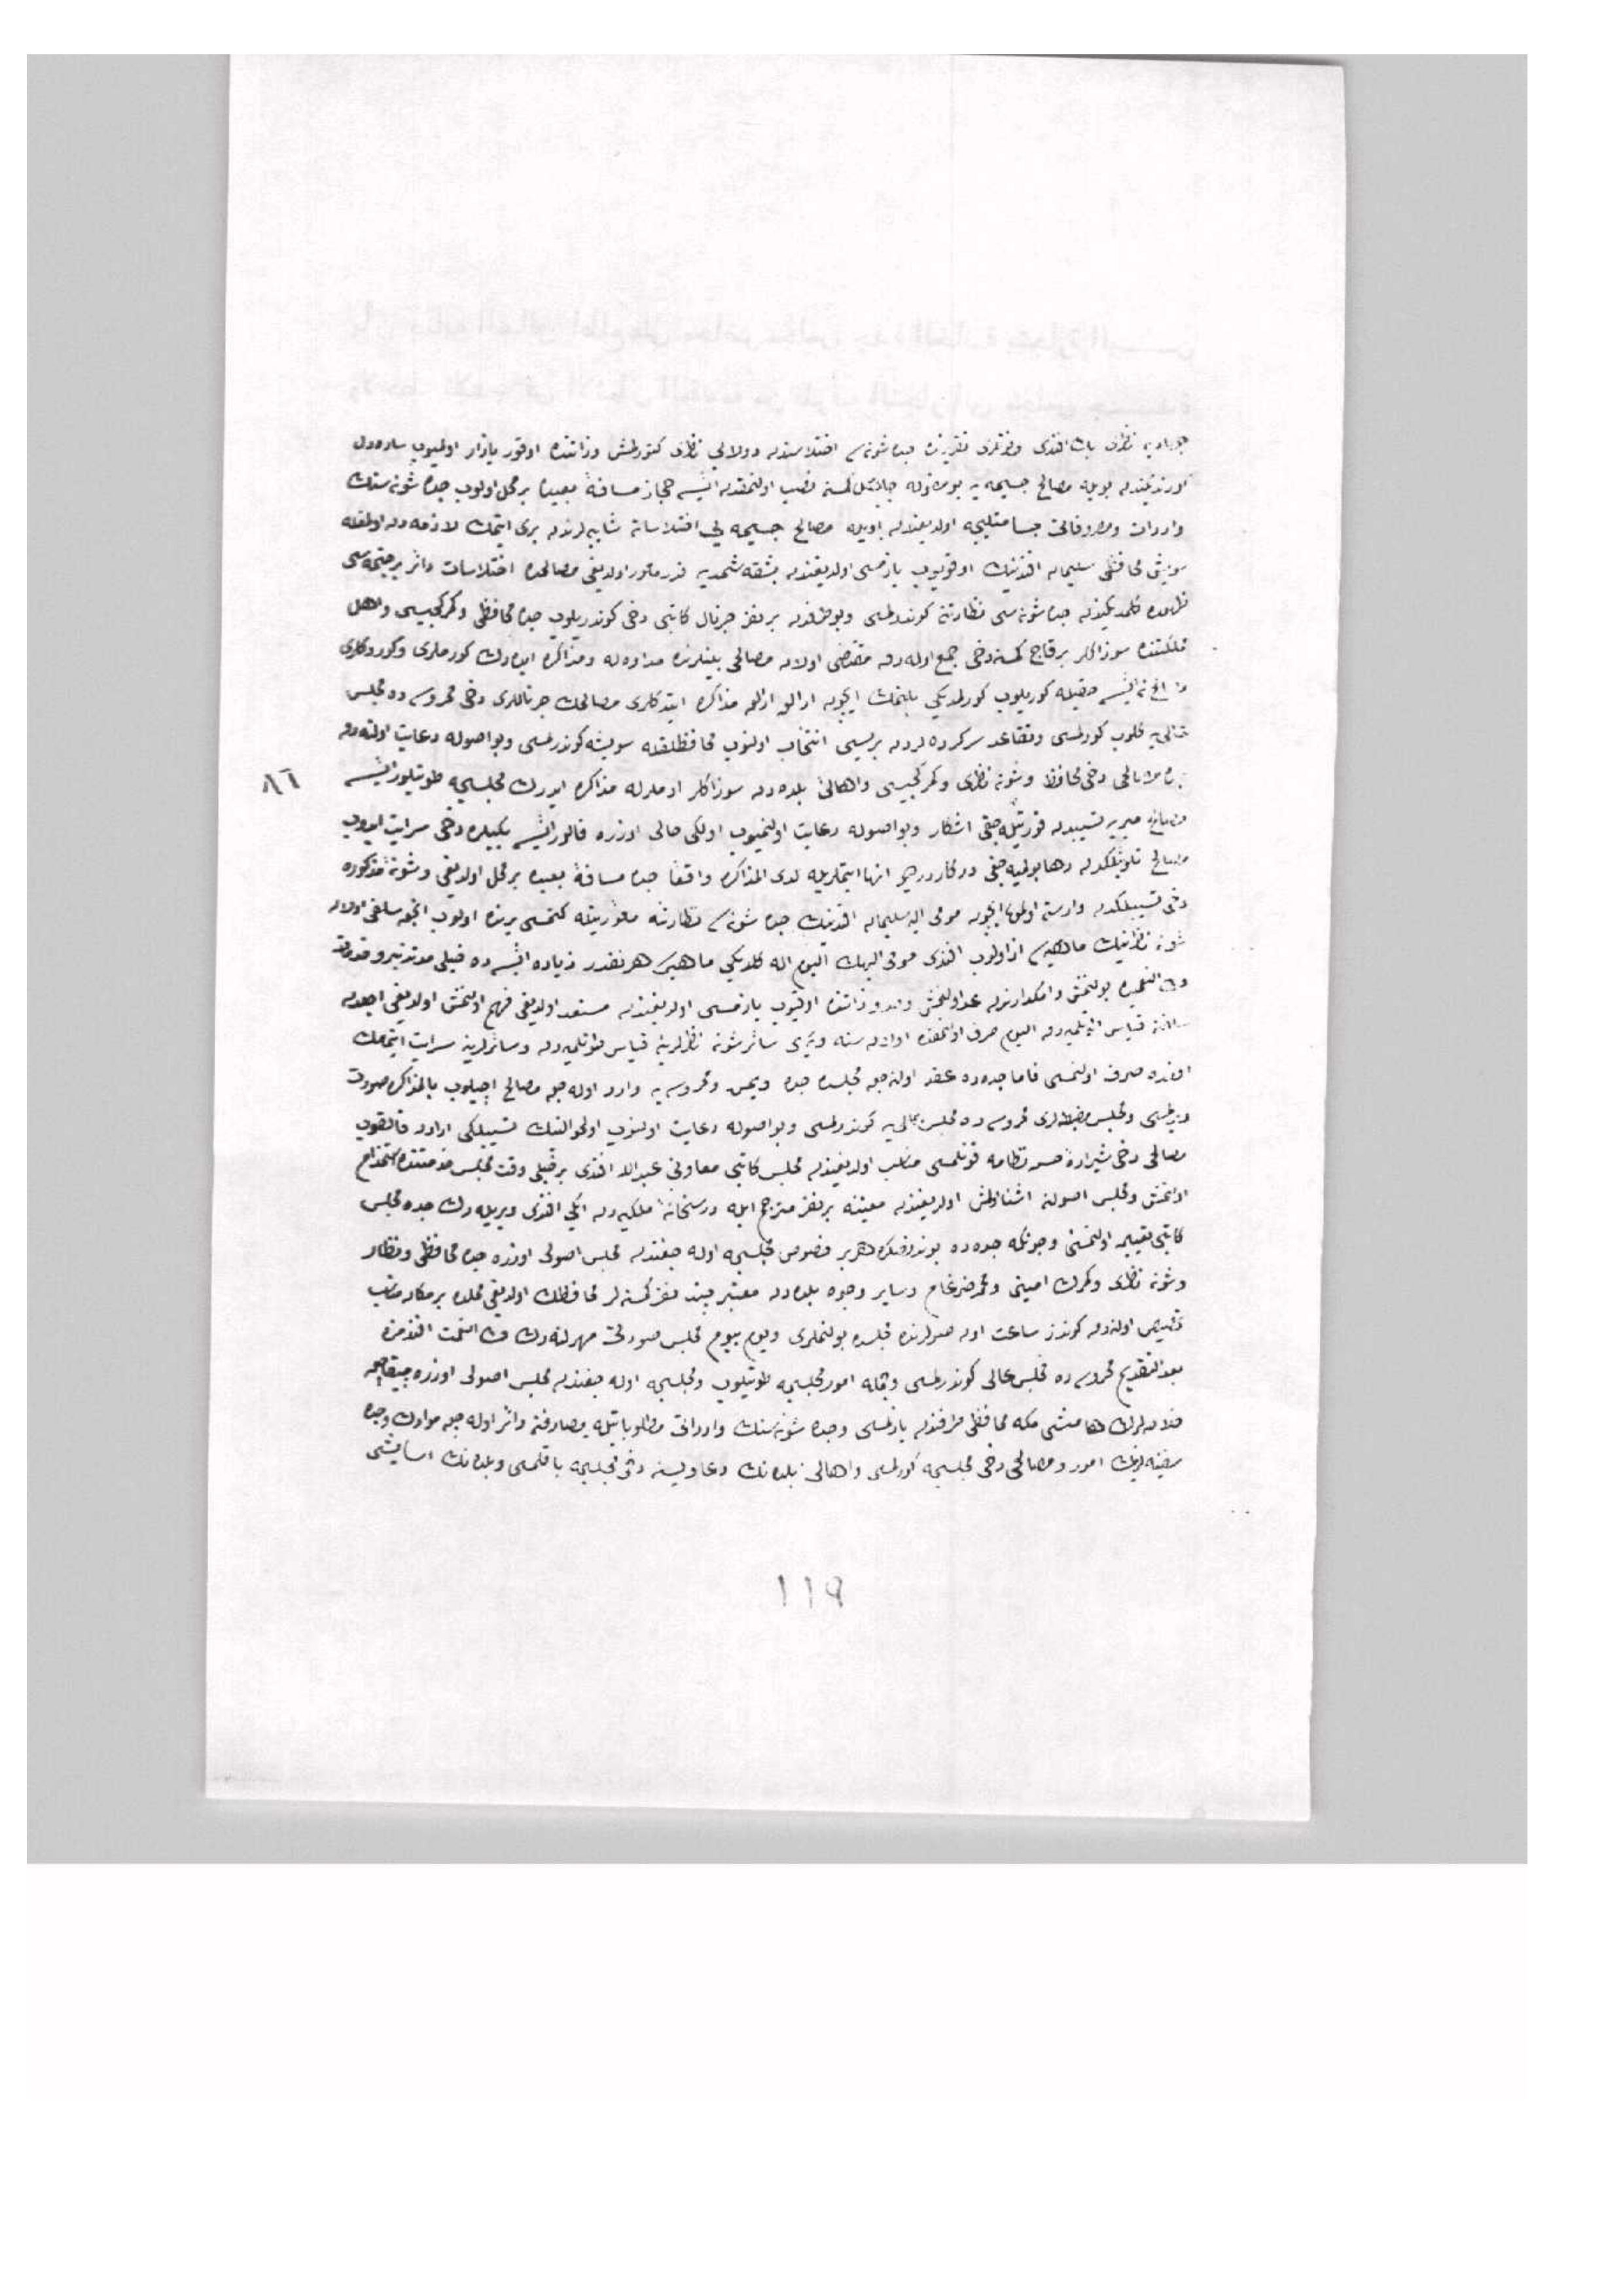 جهادیه ناظری باك افندی تقریرنده جده شونه سی اختلاسندن دولایی ناظری كتورلمش وذاتنده اوقور یازار اولمیوب ساده دل
بویله مصالح جسیمه یه بومقوله كمسنه نصب اولنمقدن ایسه حجاز مسافهٔ بعیده بر محل اولوب جده شونه سنك
واردات ومصروفاتی جسامتلیجه اولدیغندن اویله مصالح جسیمه یی اختلاسات شایبه لرندن بری ایتمك لازمه دن اولمغله
سویش محافظی سلیمان افندینك اوقویوب یازمسی اولدیغندن بشقه شمدیه قدر مأمور اولدیغی مصالحده اختلاسات دائر بر شی سی
ظهوره كلمدیكندن جده شونه سی نظارتنه كوندرلمسی وبو طرفدن بر نفر جرنال كاتبی دخی كوندریلوب جده محافظی وكمركجیسی واهل
مملكتنده سوز اكلر بر قاچ كمسنه دخی جمع اوله رق مقتضی اولان مصالحی بینلرنده مداوله ومذاكره ایده رك كورملری وكوردكلری
مصالح نه ایسه حقیله كوریلوب كورلمدیكی بلنمك ایچون ارالق ارالق مذاكره ایتدكلری مصالحك جرناللری دخی محروسه ده مجلس
عالی یه كلوب كورلمسی ومتقاعد سركرده لردن بریسی انتخاب اولنوب محافظلقله سویشه كوندرلمسی وبو اصوله رعایت اولنه رق
مصالحی دخی محافظ وشونه ناظری وكمركجیسی واهالی بلده دن سوز اكلر ادملرله مذاكره ایدرك مجلسجه طوتیلور ایسه
٨٦
مصالح میریه تسیبدن قورتیله جغی اشكار وبو اصوله رعایت اولنمیوب اولكی حالی اوزره قالور ایسه بكیلره دخی سرایت ایدوب
مصالح تلویثلكدن رها بولمیه جغی دركاردر دیو انها ایتملریله لدی المذاكره واقعا جده مسافهٔ بعیده بر محل اولدیغی وشونهٔ مذكوره
دخی تسیبلكدن وارسته اولمق ایچون مومی الیه سلیمان افندینك جده شونه سی نظارتنه مأموریتله كتمسی یرنده اولوب انجق سلفی اولان
شونه ناظرینك ماهیه سی از اولوب افندی مومی الیهك الیوم اله كلدیكی ماهیه سی هر نقدر زیاده ایسه ده خیلی مدتدنبرو خدمات
بولنمش وامكدارندن عد اولنمش وذاتنده اوقیوب یازمسی اولدیغندن مستعد اولدیغی فهم اولنمش اولدیغی اجلدن
قیاس ایدلمیه رق الیوم صرف اولنمقده اولان سنه ویری سائر شونه ناظرلرینه قیاس طوتلمیه رق وسائرلرینه سرایت ایتمامك
اوزره صرف اولنمسی فاما جده ده عقد اولنه جق مجلسده جده ویمن ومحروسه یه وارد اوله جق مصالح اچیلوب بالمذاكره صورت
ویرلمسی ومجلس مضبطه لری محروسه ده مجلس عالی یه كوندرلمسی وبو اصوله رعایت اولنوب اولحوالینك تسیبلكی ارادن قالقوب
مصالحی دخی شیرازهٔ حسن نظامه قونلمسی مطلب اولدیغندن مجلس كاتبی معاونی عبد الله افندی بر خیلی وقت مجلس خدمتنده استخدام
اولنمش ومجلس اصولنه اشنا اولمش اولدیغندن معیتنه بر نفر مترجم ایله درسخانهٔ ملكیه دن ایكی افندی ویریله رك جده مجلس
كاتبی تعیین اولنمسی وچونكه جده ده بوندنصكره هر بر خصوص مجلسجه اوله جغندن مجلس اصولی اوزره جده محافظی وناظر
وشونه ناظری وكمرك امینی وسایر وجوه بلده دن معتبر چند نفر كمسنه لر محافظك اولدیغی محلده بر مكان مناسب
تخصیص اولنه رق كوندز ساعت اون صولرنده مجلسده بولنملری ویوم بیوم مجلس صورتی مهرلنه رك افندمزه
بعد التقدیم محروسه ده مجلس عالی كوندرلمسی وجمله امور مجلسجه طوتیلوب ومجلسجه اوله جغندن مجلس اصولی اوزره چیقاجق
خلاصه لرك هامشی مكه محافظی طرفندن یازلمسی وجده شونه سنك وارداتی مطلوباتیله مصارفنه دائر اوله جق موادك وجده
سفینه لرینك امور ومصالحی دخی مجلسجه كورلمسی واهالی بلده نك دعاویسنه دخی مجلسجه باقلمسی وبلده نك اسایشی
١١٩